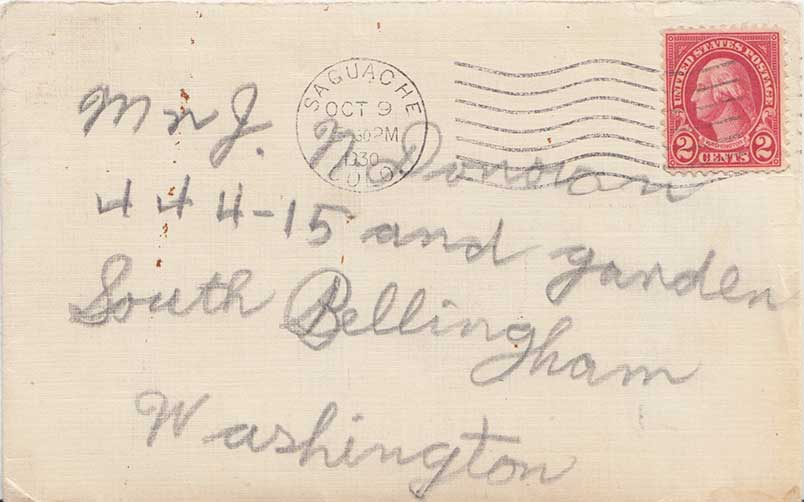 SAGUACHE
OCT 9
30PM
1930
COLO.
UNITED STATES POSTAGE
WASHINGTON
2 CENTS 2
Mr J. N. Donovan
444-15 and garden
South Bellingham
Washington